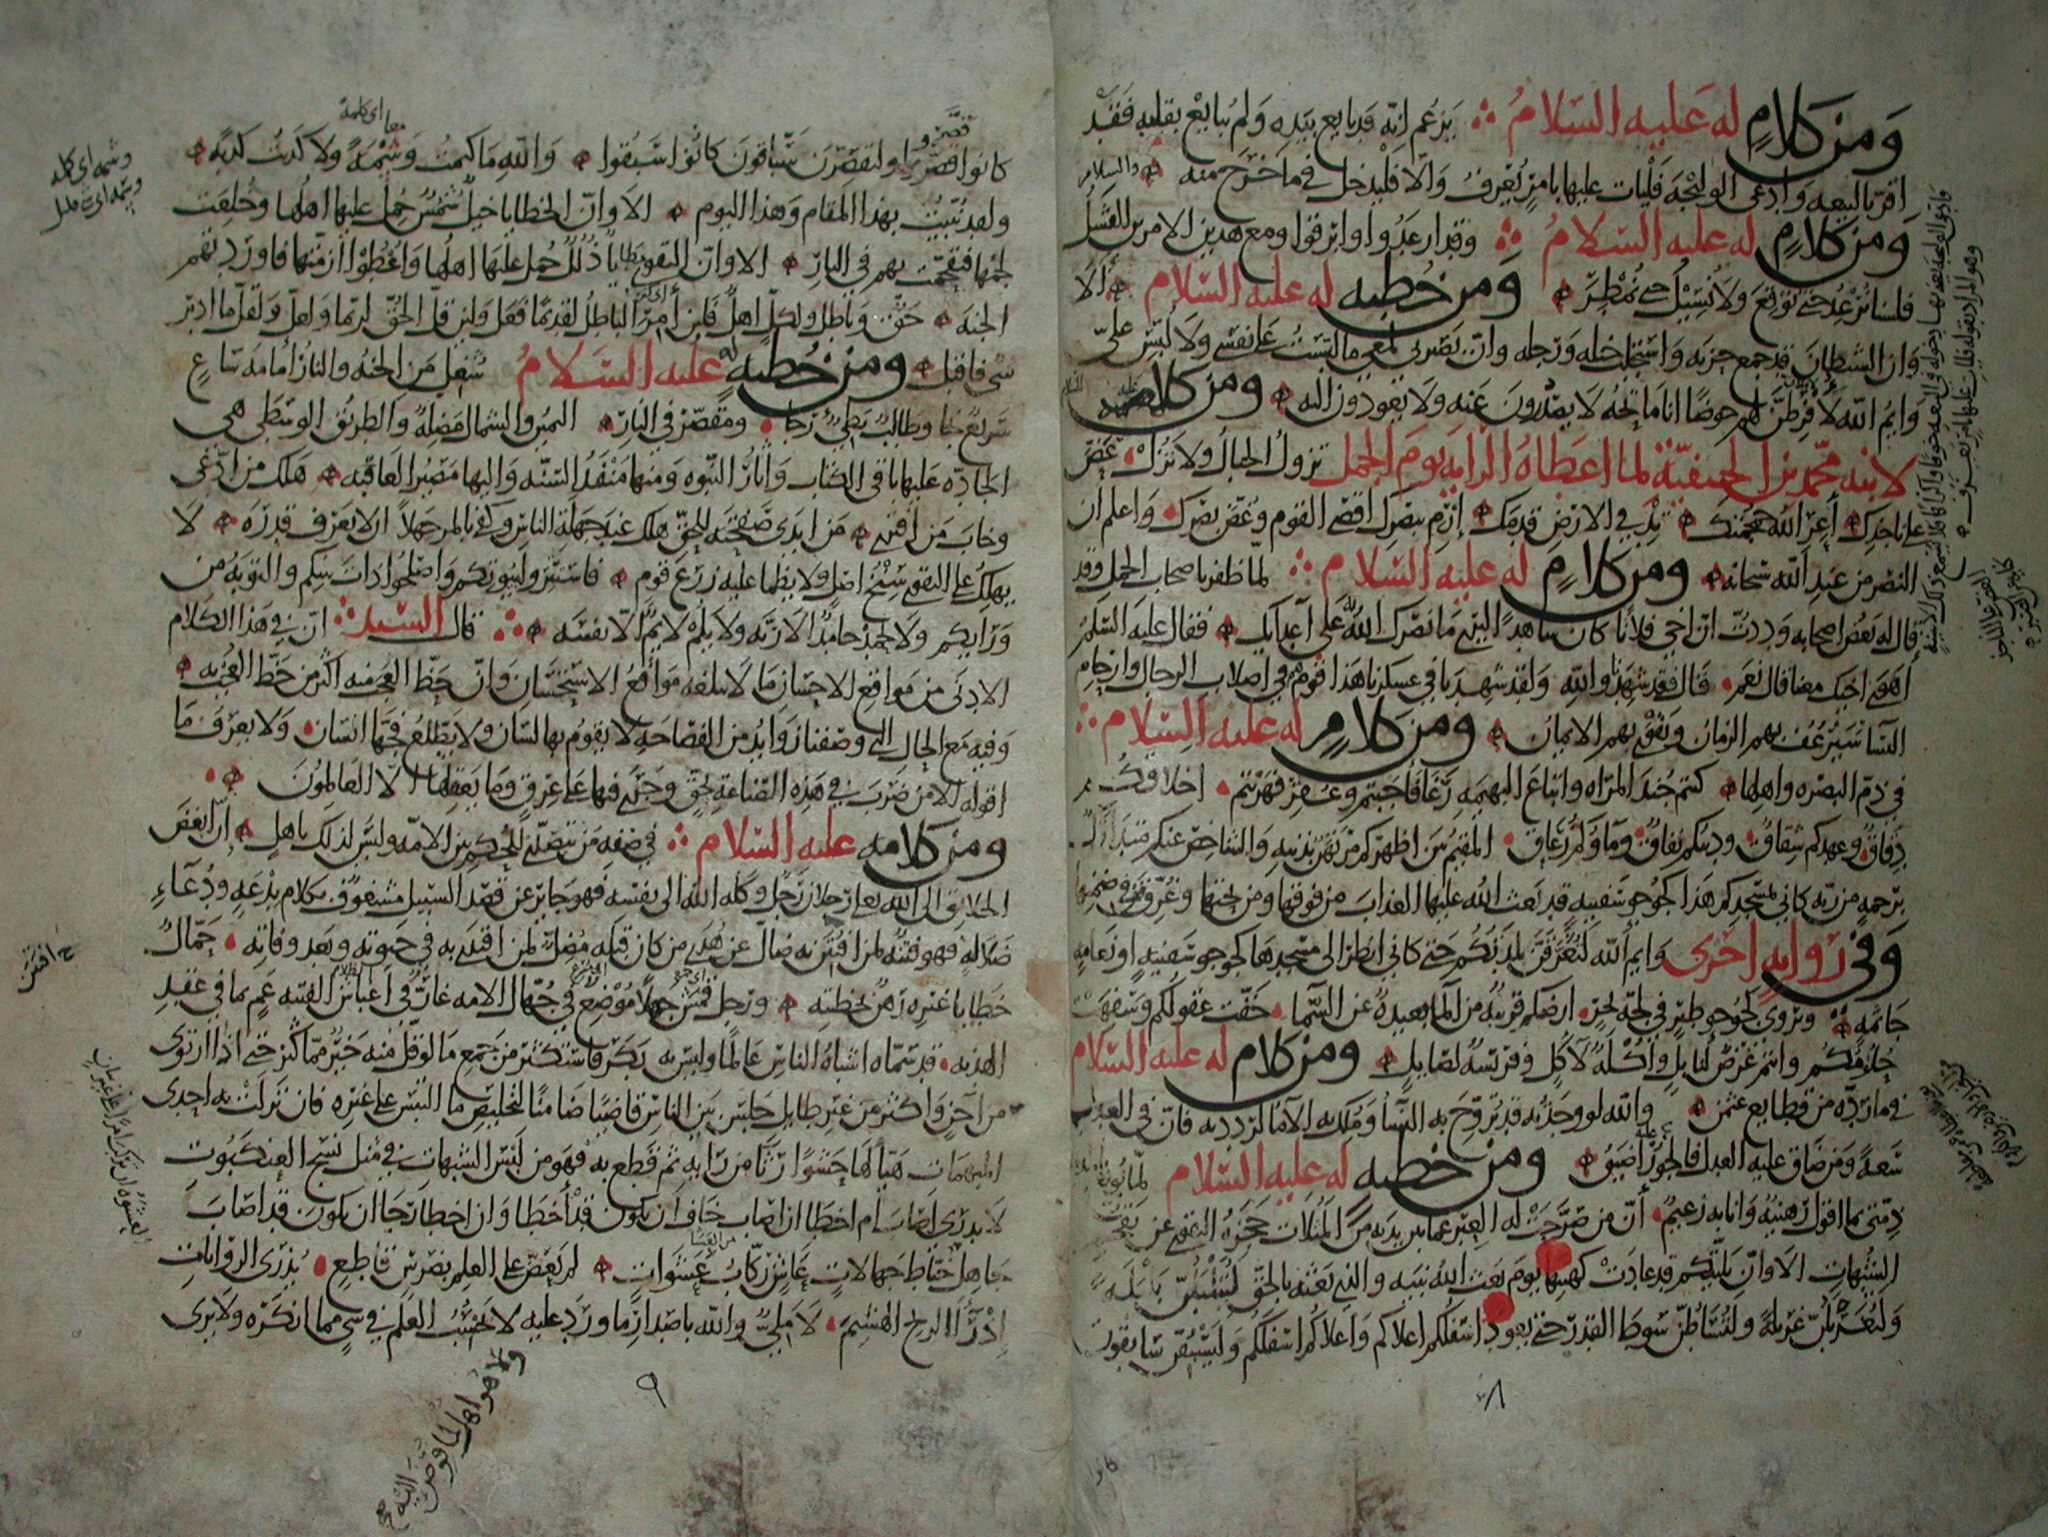 ومن كلام له عليه السلام يزعم انه قد بايع بيده ولم يبايع بقلبه فقد
اقر بالبيعه وادعى الوليجه فليات عليها بامر يعرف والا فليدخل في ما خرج منه والسلام
ومن كلام له عليه السلام وقد ارعدوا وابرقوا ومع هذين الامرين الفشل
فلسنا نرعد حتى نوقع ولا نسيل حتى نمطر ومن خطبه له عليه السلام الا
وان الشيطان قد جمع حزبه واستجلب خيله ورجله وان بصيرتي لمعي ما لبست على نفسي ولا لبس علي
وايم الله لافرطن لهم حوضا انا ماتحه لا يصدرون عنه ولا يعودون اليه ومن كلام له عليه السلام
لابنه محمد بن الحنفية لما اعطاه الرايه يوم الجمل تزول الجبال ولا تزل عض
على ناجذك أعر الله جمجمتك تد في الارض قدمك ارم ببصرك اقصى القوم وغض بصرك واعلم ان
النصر من عند الله سبحانه ومن كلام له عليه السلام لما ظفر باصحاب الجمل وقد
قال له بعض اصحابه وددت ان اخي فلانا كان شاهدا ليرى ما نصرك الله على أعدائك فقال عليه السلم
أهوى اخيك معنا فقال نعم قال فقد شهدنا والله ولقد شهدنا في عسكرنا هذا قوم في اصلاب الرجال وارحام
النسا سيرعف بهم الزمان ويقوى بهم الايمان ومن كلام له عليه السلام
في ذم البصره واهلها كنتم جند المراه واتباع البهيمه رغا فاجبتم وعقر فهربتم اخلاقكم
دقاق وعهدكم شقاق ودينكم نفاق وماؤكم زعاق المقيم بين اظهركم مرتهن بذنبه والشاخص عنكم متدارك
برحمه من ربه كاني بمسجدكم هذا كجوجو سفينه قد بعث الله عليها العذاب من فوقها ومن تحتها وغرق من في ضمنها
وفي رواية اخرى وايم الله لتغرقن بلدتكم حتى كاني انظر الى مسجدها كجوجو سفينه او نعامه
جاثمه ويروى كجوجو طير في لجة بحر ارضكم قريبه من الما بعيدة عن السما خفت عقولكم وسفهت
حلومكم وانتم غرض لنابل وأكلة لآكل وفريسه لصايل ومن كلام له عليه السلام
في ما رده من قطايع عثمن والله لو وجدته قد تزوج به النسا وملك به الاما لرددته فان في العدل
سعة ومن ضاق عليه العدل فالجور عليه أضيق ومن خطبه له عليه السلام لما بويع
ذمتي بما اقول رهينه وانا به زعيم أن من صرحت له العبر عما بين يديه من المثلات حجزه التقوى عن تقحم
الشبهات الا وان بليتكم قد عادت كهيئتها يوم بعث الله نبيه والذي بعثه بالحق لتبلبلن بلبلة
ولتغربلن غربلة ولتساطن سوط القدر حتى يعود اسفلكم اعلاكم واعلاكم اسفلكم وليسبقن سابقون
٨
كانوا قصروا وليقصرن سباقون كانوا سبقوا والله ما كتمت وشمة ولا كذبت كذبه
ولقد نبيت بهذا المقام وهذا اليوم الا وان الخطايا خيل شمس حمل عليها اهلها وخلعت
لجمها فتقحمت بهم في النار الا وان التقوى مطايا ذلل حمل عليها اهلها واعطوا ازمتها فاوردتهم
الجنه حق وباطل ولكل اهل فلين أمر الباطل لقديما فعل ولين قل الحق لربما ولعل ولقل ما ادبر
شي فاقبل ومن خطبه له عليه السلام شغل من الجنه والنار أمامه ساع
سريع نجا وطالب بطي رجا ومقصر في النار اليمين والشمال مضلة والطريق الوسطى هي
الجاده عليها باقي الكتاب وآثار النبوه ومنها منفذ السنه واليها مصير العاقبه هلك من ادعى
وخاب من افترى من ابدى صفحته للحق هلك عند جهلة الناس وكفى بالمر جهلا ان لا يعرف قدره لا
يهلك على التقوى سنخ اصل ولا يظما عليه زرع قوم فاستتروا ببيوتكم واصلحوا ذات بينكم والتوبه من
ورايكم ولا يحمد حامد الا ربه ولا يلم لايم الا نفسه قال السيد ان في هذا الكلام
الادنى من مواقع الاحسان ما لا تبلغه مواقع الاستحسان وان حظ العجب منه اكثر من حظ العجب به
وفيه مع الحال التي وصفنا زوايد من الفصاحه لا يقوم بها لسان ولا يطلع فجها انسان ولا يعرف ما
اقوله الا من ضرب في هذه الصناعة بحق وجرى فيها على عرق وما يعقلها الا العالمون
ومن كلامه عليه السلام في صفه من يتصدى للحكم بين الامه وليس لذلك باهل إن أبغض
الخلائق الى الله تعالى رجلان رجل وكله الله الى نفسه فهو جاير عن قصد السبيل مشغوف بكلام بدعه ودعاء
ضلاله فهو فتنة لمن افتتن به ضال عن هدي من كان قبله مضل لمن اقتدى به في حيوته وبعد وفاته حمال
خطايا غيره رهن بخطيته ورجل قمش جهلا موضع في جهال الامه غار في أغباش الفتنه عم بما في عقد
الهدنه قد سماه اشباه الناس عالما وليس به بكر فاستكثر من جمع ما قل منه خير مما كثر حتى اذا ارتوى
من آجن واكتنز من غير طايل جلس بين الناس قاضيا ضامنا لتخليص ما التبس على غيره فان نزلت به احدى
المبهمات هيا لها حشوا رثا من رايه ثم قطع به فهو من لبس الشبهات في مثل نسج العنكبوت
لا يدري اصاب ام اخطا ان اصاب خاف ان يكون قد أخطا وان اخطا رجا ان يكون قد اصاب
جاهل خباط جهالات عاش ركاب عشوات لم يعض على العلم بضرس قاطع يذري الروايات
إذرا الريح الهشيم لا ملي والله باصدار ما ورد عليه لا يحسب العلم في شي مما انكره ولا يرى
ولا هو اهل لما فوض اليه
٩